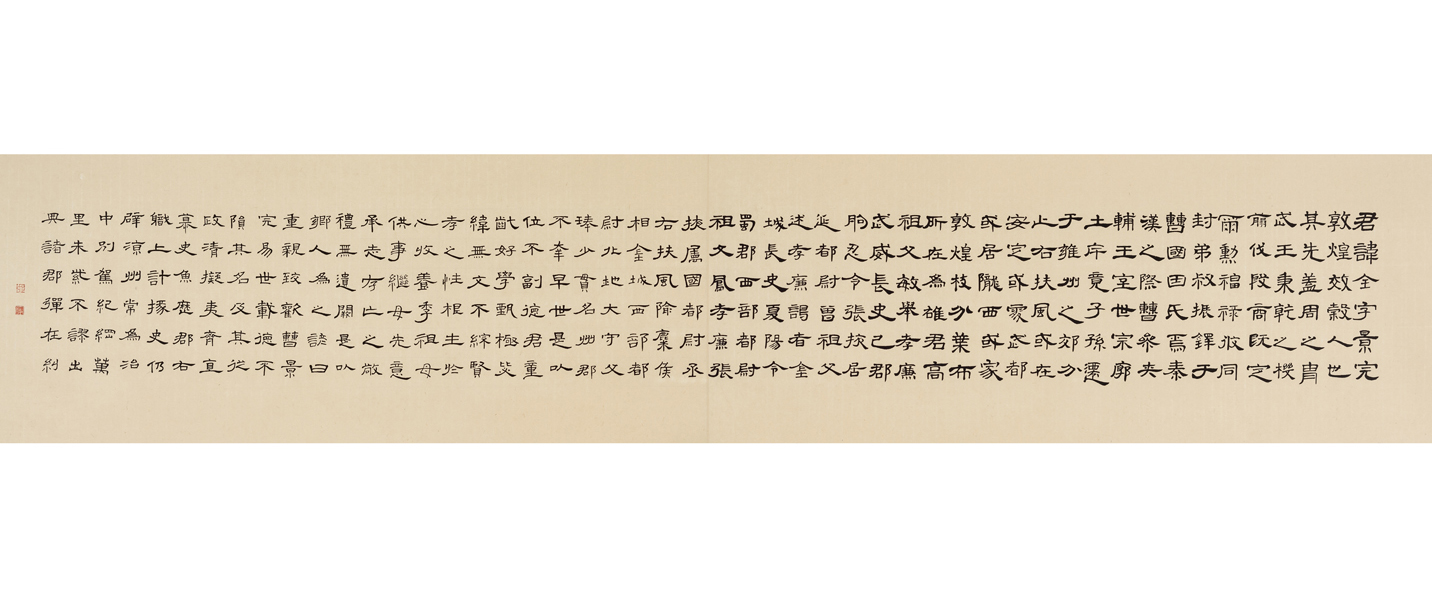 君諱全字景完
敦煌效穀人也
其先蓋周之胄
武王秉乾之機
翦伐殷商既定
爾勳福祿攸同
封弟叔振鐸于
曹國因氏焉秦
漢之際曹參夾
輔王室世宗廓
土斥竟子孫遷
于雍州之郊分
止右扶風或在
安定或處武都
或居隴西或家
敦煌枝分葉布
所在為雄君高
祖父敏舉孝廉
武威長史巴郡
朐忍令張掖居
延都尉曾祖父
述孝廉謁者金
城長史夏陽令
蜀郡西部都尉
祖父鳳孝廉張
掖屬國都尉丞
右扶風隃麋侯
相金城西部都
尉北地大守父
琫少貫名州郡
不幸早世是以
位不副德君童
齔好學甄極毖
緯無文不綜賢
孝之性根生於
心收養季祖母
供事繼母先意
承志存亡之敬
禮無遺闕是以
鄉人為之諺曰
重親致歡曹景
完易世載德不
隕其名及其從
政清擬夷齊直
慕史魚歷郡右
職上計掾史仍
辟涼州常為治
中別駕紀綱萬
里朱紫不謬出
典諸郡彈枉糾